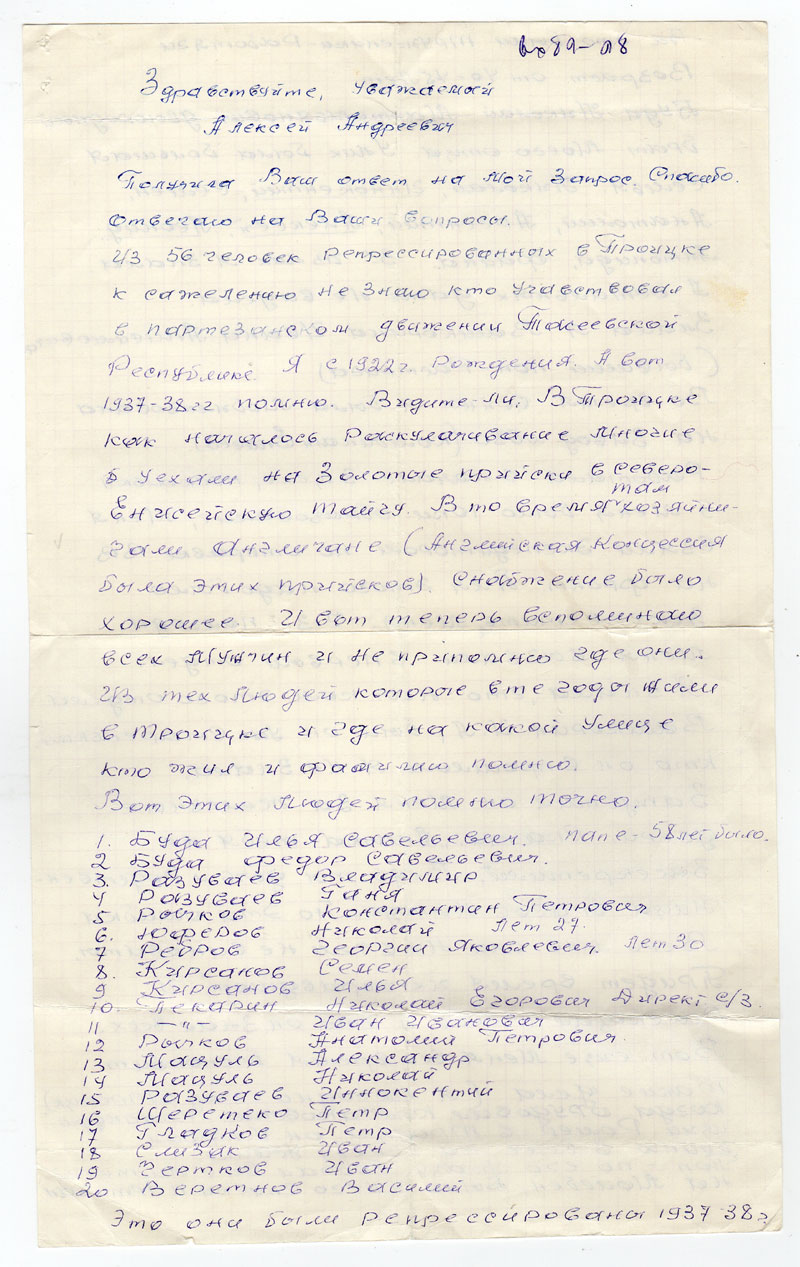 вх 89-08
Здравствуйте, уважаемый
Алексей Андреевич
Получила Ваш ответ на мой запрос, спасибо.
Отвечаю на Ваши вопросы.
Из 56 человек репрессированных в Троицке
к сажелению не знаю кто учавствовал
в партезанском движении Тасеевской
Республике. Я с 1922 г. рождения. А вот
1937-38 гг помню. Видите-ли, в Троицке
как началось раскулачивание многие
уехали на золотые прийски в Северо-
Енисейскую тайгу. В то время там хозяйни-
чали Англичане (Английская концессия
была этих прийсков). Снабжение было
хорошее. И вот теперь вспоминаю
всех мужчин и не припомню где они.
Из тех людей которые в те годы жили
в Троицке и где на какой улице
кто жил и фамилию помню.
Вот этих людей помню точно.
1. Буда Илья Савельевич. папе - 58 лет было.
2 Буда Федор Савельевич.
3. Разуваев Владимир
4 Разуваев Ганя
5 Рычков Константин Петрович
6. Юферов Николай лет 27.
7 Ребров Георгий Яковлевич. лет 30
8. Кирсанов Семен
9 Кирсанов Илья
10. Пекарин Николай Егорович Директ с/з.
11 —"— Иван Иванович
12 Рычков Анатолий Петрович.
13 Мацуль Александр
14 Мацуль Николай
15 Разуваев Иннокентий
16 Шеретеко Петр
17 Гладков Петр
18 Слизак Иван
19 Чертков Иван
20 Веретнов Василий
Это они были репрессированы 1937 38 г.